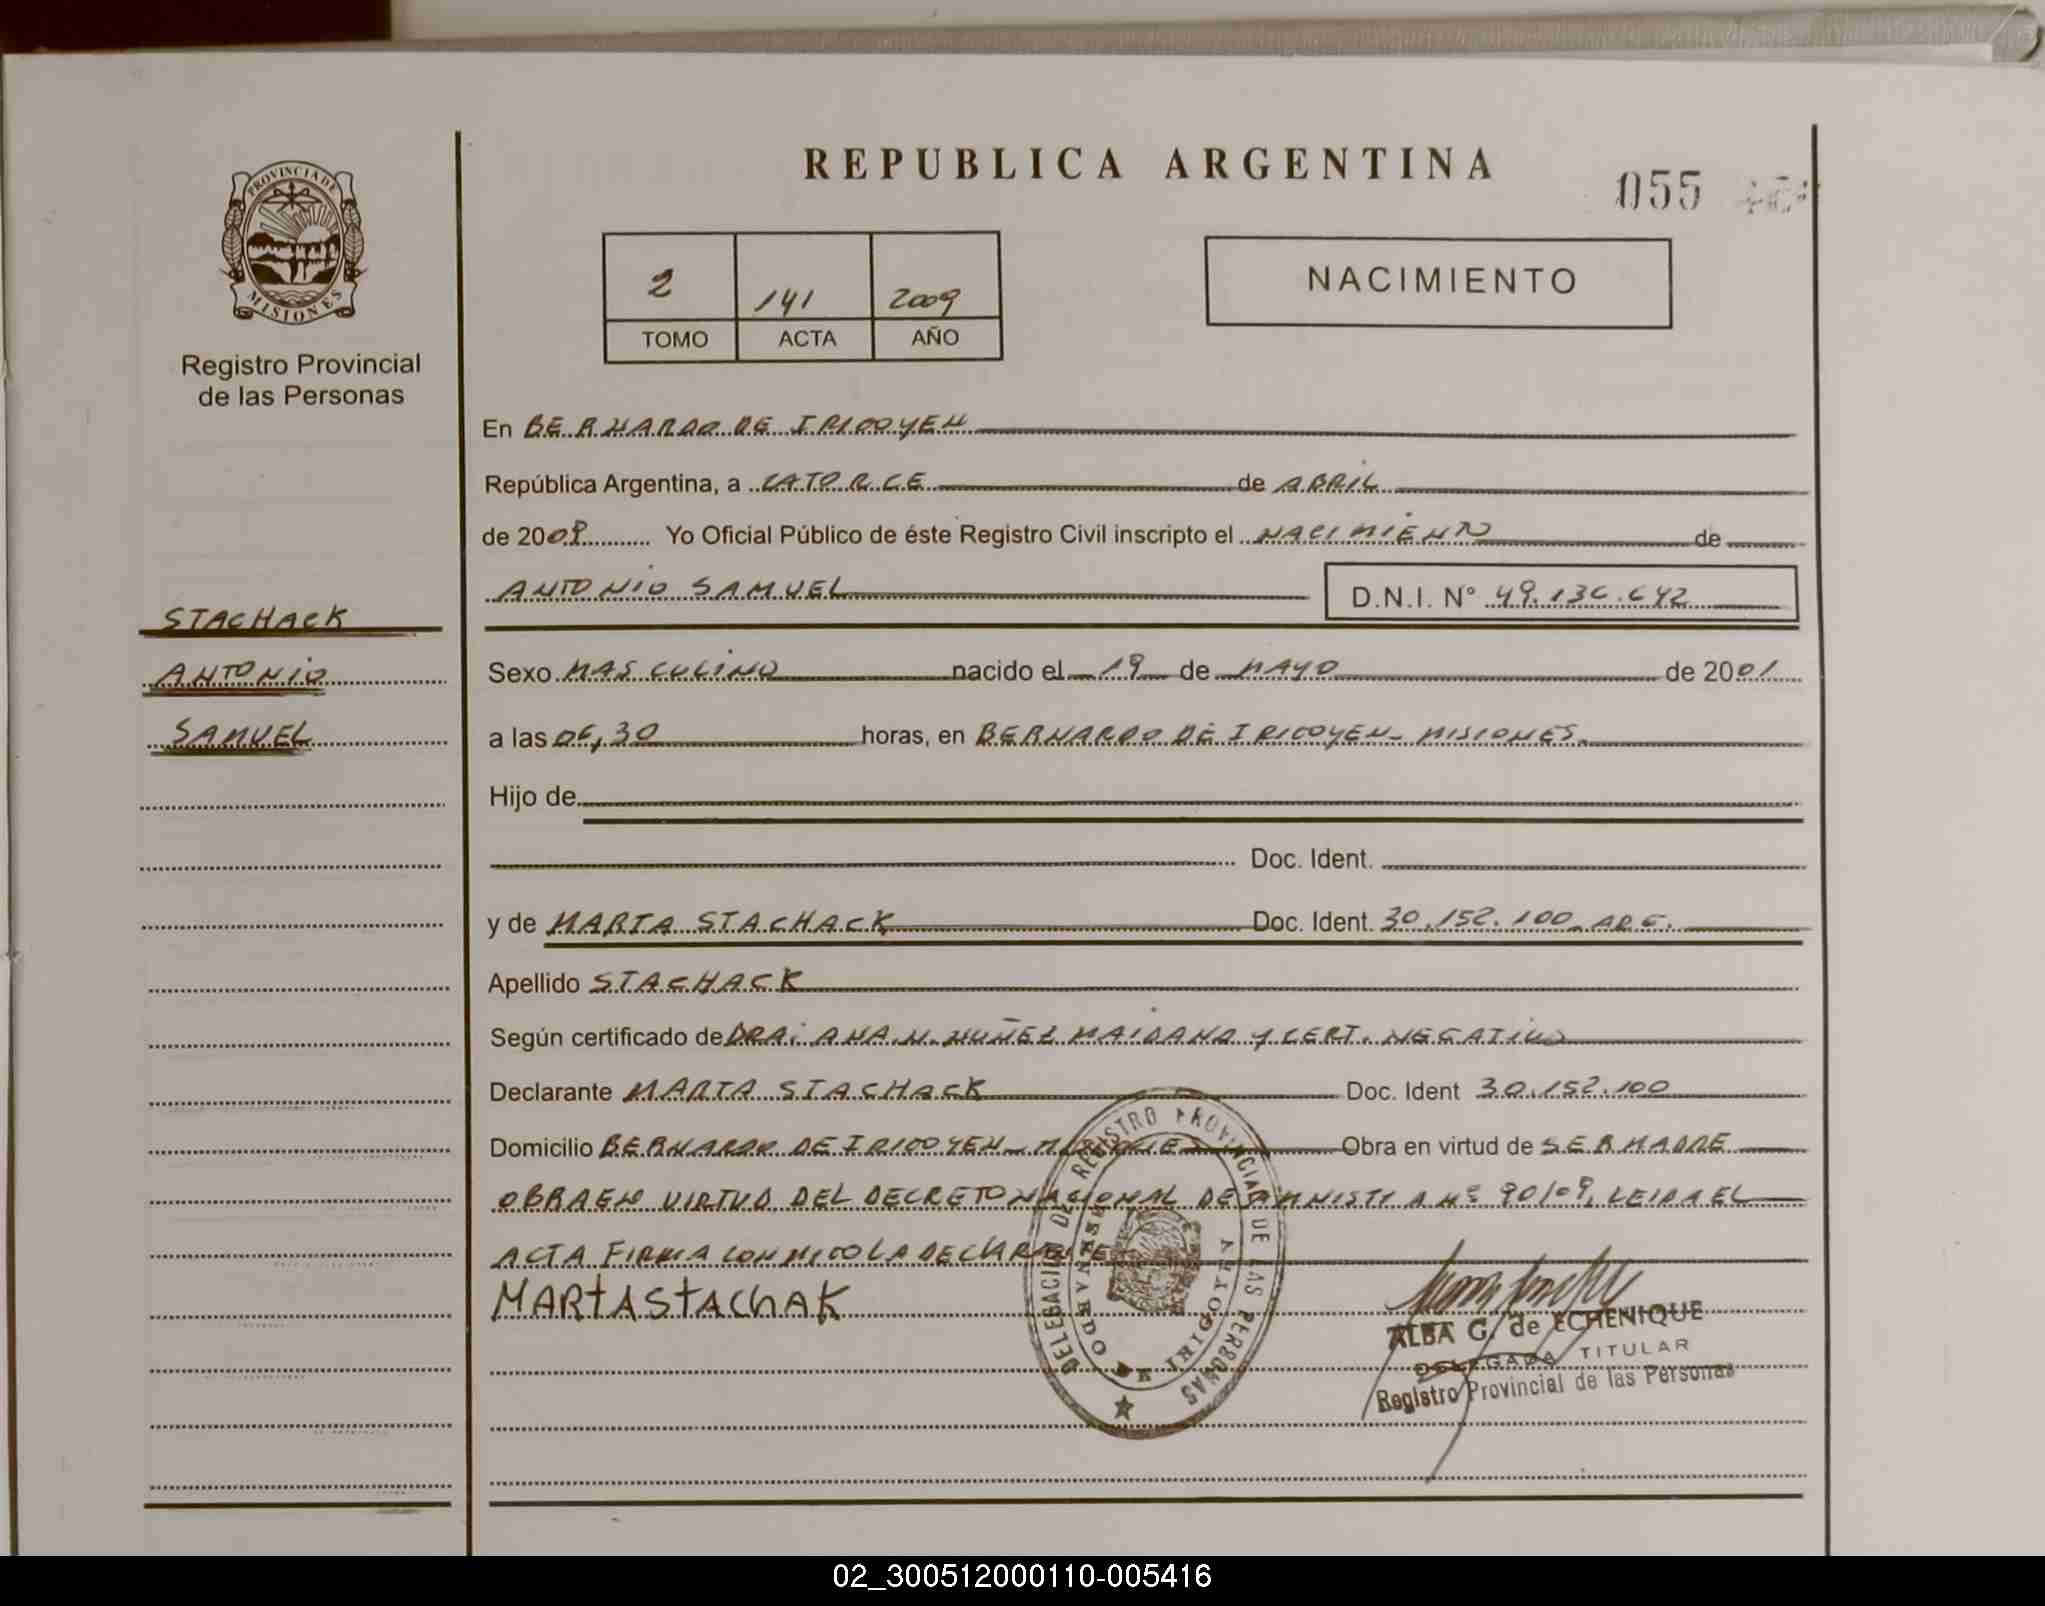 REPUBLICA ARGENTINA
055
PROVINCIA DE
MISIONES
Registro Provincial
de las Personas
2 141 2009
TOMO ACTA AÑO
NACIMIENTO
En BERNARDO DE IRIGOYEN
República Argentina, a CATORCE de ABRIL
de 2009 Yo Oficial Público de éste Registro Civil inscripto el NACIMIENTO de
ANTONIO SAMUEL D.N.I. N° 49.136.642
STACHACK
ANTONIO
SAMUEL
Sexo MASCULINO nacido el 19 de MAYO de 2001
a las 06,30 horas, en BERNARDO DE IRIGOYEN - MISIONES.
Hijo de
Doc. Ident.
y de MARTA STACHACK Doc. Ident. 30.152.100 ARG.
Apellido STACHACK
Según certificado de DRA. ANA.N. NUÑEZ MAIDANA Y CERT. NEGATIVO
Declarante MARTA STACHACK Doc. Ident 30.152.100
Domicilio BERNARDO DE IRIGOYEN - MISIONES Obra en virtud de SER MADRE
OBRA EN VIRTUD DEL DECRETO NACIONAL DE AMNISTIA Nº 90/09, LEIDA EL
ACTA FIRMA CONMIGO LA DECLARANTE
MARTA STACHAK
DELEGACION DEL REGISTRO PROVINCIAL DE LAS PERSONAS
BERNARDO DE IRIGOYEN
ALBA G. de ECHENIQUE
DELEGADA TITULAR
Registro Provincial de las Personas
02_300512000110-005416